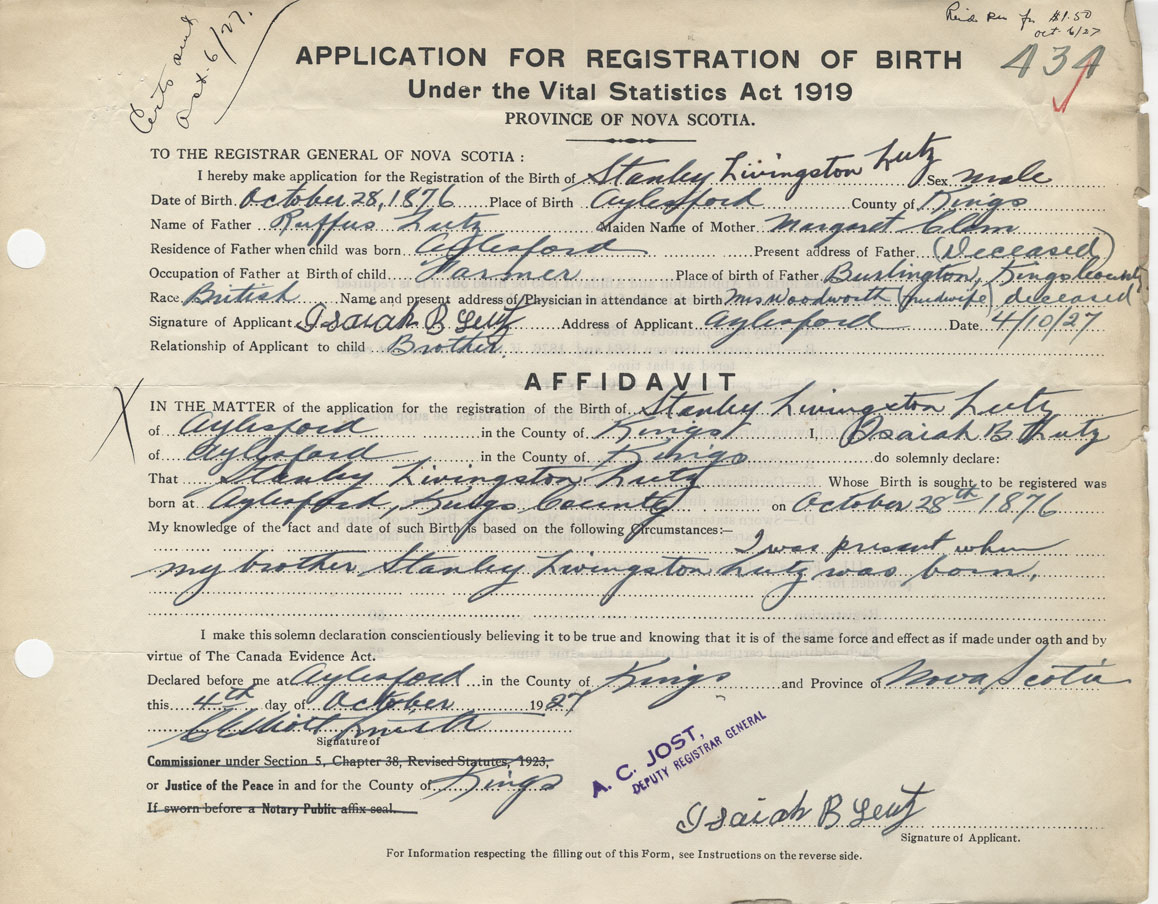 Certs sent
Oct. 6/27.
$1.50
Oct 6/27
434
APPLICATION FOR REGISTRATION OF BIRTH
Under the Vital Statistics Act 1919
PROVINCE OF NOVA SCOTIA.
TO THE REGISTRAR GENERAL OF NOVA SCOTIA :
I hereby make application for the Registration of the Birth of Stanley Livingston Lutz Sex male
Date of Birth. October 28, 1876 Place of Birth Aylesford County of Kings
Name of Father Ruffus Lutz Maiden Name of Mother Margaret
Residence of Father when child was born Aylesford Present address of Father (Deceased)
Occupation of Father at Birth of child Farmer Place of birth of Father Burlington, Kings County
Race British Name and present address of Physician in attendance at birth Mrs Woodworth (midwife) deceased
Signature of Applicant Isaiah B Lutz Address of Applicant Aylesford Date 4/10/27
Relationship of Applicant to child Brother.
AFFIDAVIT
X
IN THE MATTER of the application for the registration of the Birth of Stanley Livingston Lutz
of Aylesford in the County of Kings I, Isaiah B. Lutz
of Aylesford in the County of Kings do solemnly declare:
That Stanley Livingston Lutz Whose Birth is sought to be registered was
born at Aylesford, Kings County on October 28th 1876
My knowledge of the fact and date of such Birth is based on the following Circumstances:—
I was present when
my brother Stanley Livingston Lutz was born.
I make this solemn declaration conscientiously believing it to be true and knowing that it is of the same force and effect as if made under oath and by
virtue of The Canada Evidence Act.
Declared before me at Aylesford in the County of Kings and Province of Nova Scotia
this 4th day of October 1927
C Elliott Smith
Signature of
Commissioner under Section 5, Chapter 38, Revised Statutes, 1923,
or Justice of the Peace in and for the County of Kings
If sworn before a Notary Public affix seal.
A. C. JOST,
DEPUTY REGISTRAR GENERAL
Isaiah B Lutz
Signature of Applicant.
For Information respecting the filling out of this Form, see Instructions on the reverse side.